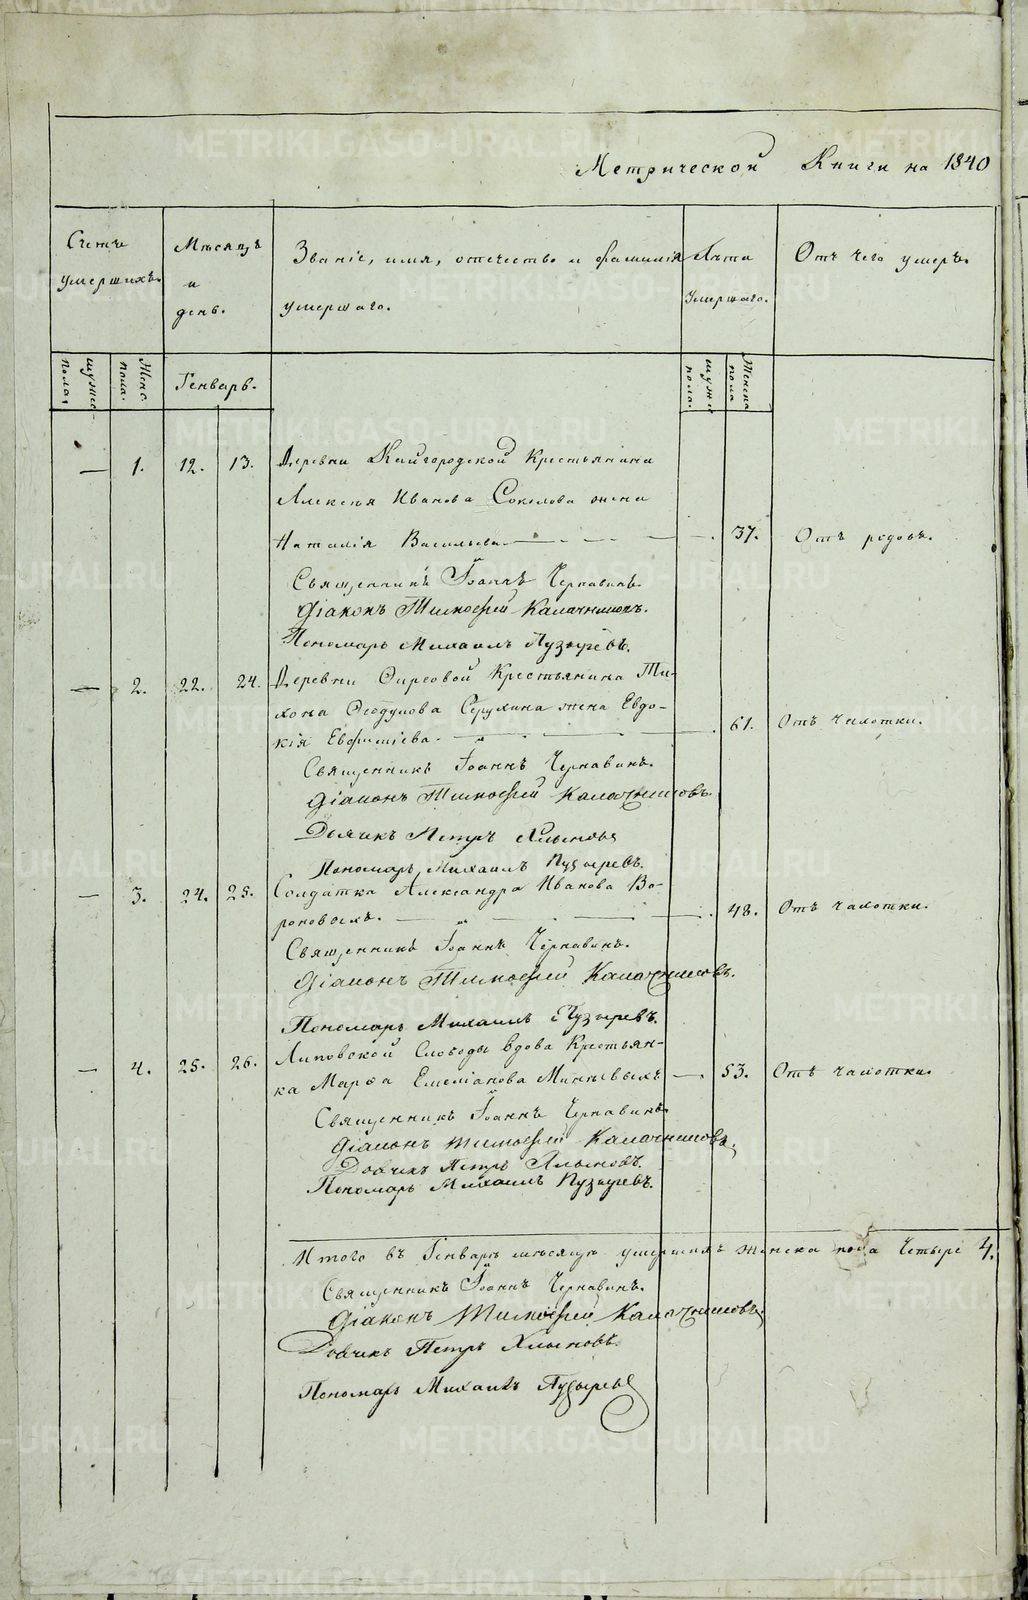 Метрической Книги на 1840
Счетъ умершихъ.
Мѣсяцъ и день.
Званіе, имя, отечество и фамилія умершаго.
Лѣта умершаго.
Отъ чего умеръ.
мужес. пола
Женс. пола.
Генварь.
муже пола.
Женска пола
— 1. 12. 13. Деревни Кайгородской Крестьянина
Алексѣя Иванова Соколова жена
Наталія Васильева. — 37. Отъ родовъ.
Священникъ Іоаннъ Чернавинъ.
Діаконъ Тимоѳей Калачниковъ.
Пономарь Михаилъ Пузыревъ.
— 2. 22. 24. Деревни Крестьянина Ти-
хона Ѳеодулова жена Евдо-
кія Евѳиміева. — 61. Отъ чахотки.
Священникъ Іоаннъ Чернавинъ.
Діаконъ Тимоѳей Калачниковъ.
Дьячикъ Петръ Хлыновъ
Пономарь Михаилъ Пузыревъ.
— 3. 24. 25. Солдатка Александра Иванова Во-
роновыхъ. — 48. Отъ чахотки.
Священникъ Іоаннъ Чернавинъ.
Діаконъ Тимоѳей Калачниковъ.
Пономарь Михаилъ Пузыревъ.
— 4. 25. 26. Липовской Слободы вдова Крестьян-
ка Марѳа Емеліанова — 53. Отъ чахотки.
Священникъ Іоаннъ Чернавинъ.
Діаконъ Тимоѳей Калачниковъ.
Дьячикъ Петръ Хлыновъ.
Пономарь Михаилъ Пузыревъ.
Итого въ Генварѣ мѣсяцѣ умершихъ женска пола Четыре 4.
Священникъ Іоаннъ Чернавинъ.
Діаконъ Тимоѳей Калачниковъ.
Дьячикъ Петръ Хлыновъ.
Пономарь Михаилъ Пузыревъ
METRIKI.GASO-URAL.RU